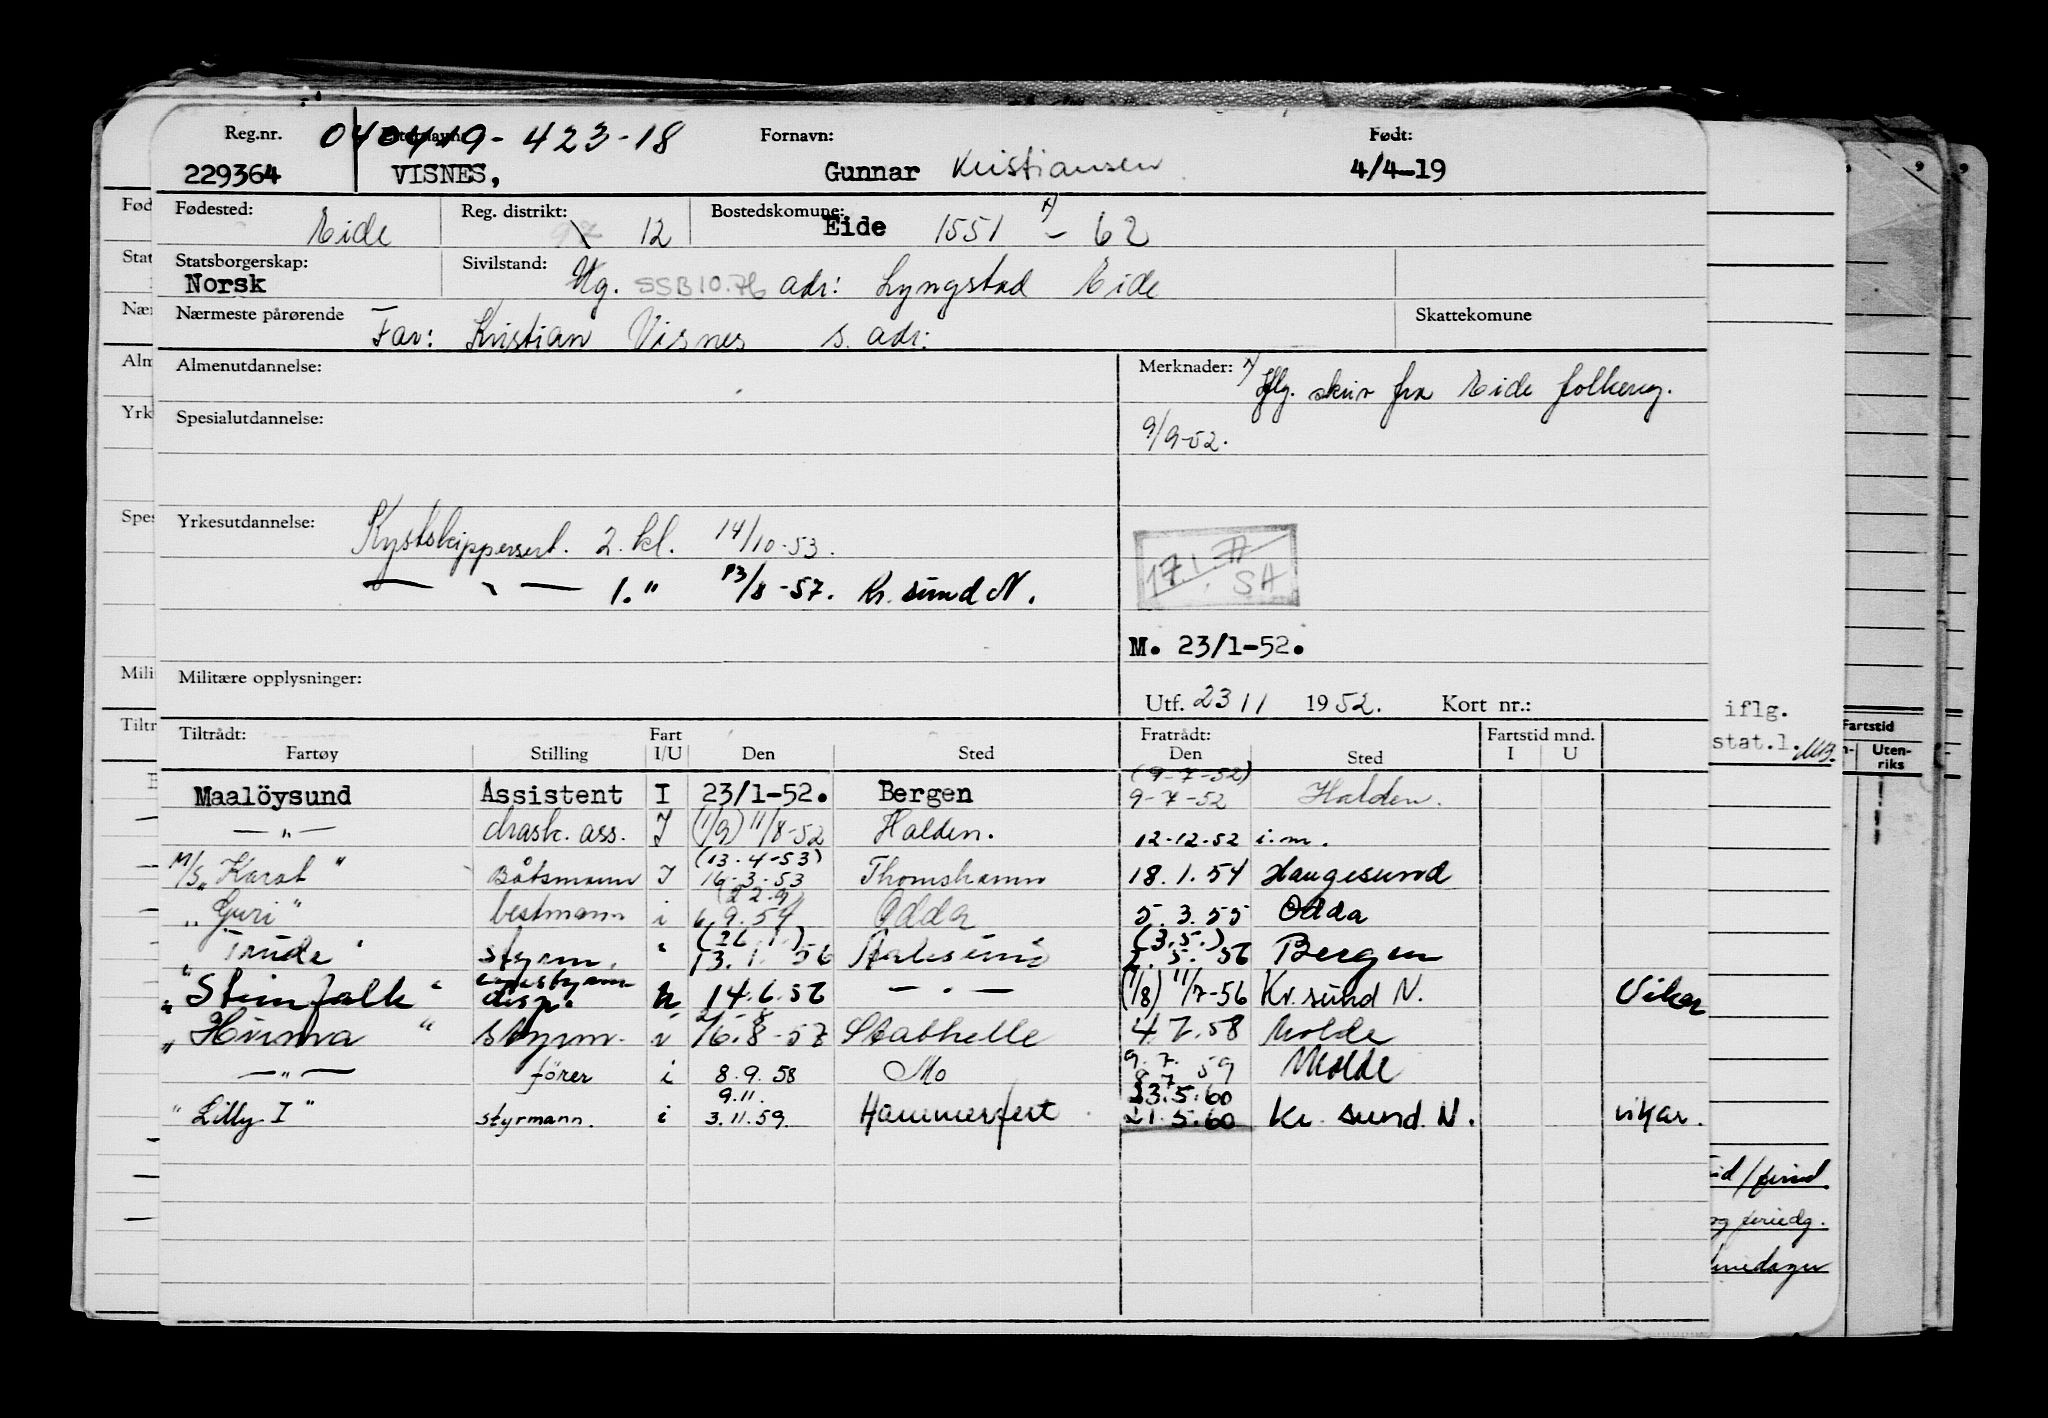 Reg.nr. 040419-423-18 Etternavn: Fornavn: Født:
229364 VISNES, Gunnar Kristiansen 4/4-19
Fødested: Eide Reg. distrikt: 12 Bostedskomune: Eide 1551 x) - 62
Statsborgerskap: Norsk Sivilstand: Ug. SSB10.76 adr: Lyngstad Eide
Nærmeste pårørende Far: Kristian Visnes s. adr: Skattekomune
Almenutdannelse: Merknader: x) Iflg. skriv fra Eide folkereg.
Spesialutdannelse: 9/9-52.
Yrkesutdannelse: Kystskippersert. 2. kl. 14/10-53.
— " — 1. " 13/8-57. Kr. sund N.
17.1.77 SA
M. 23/1-52.
Militære opplysninger:
Utf. 23/1 1952. Kort nr.:
Tiltrådt: Fart Fratrådt: Fartstid mnd.
Fartøy Stilling I/U Den Sted Den Sted I U
(9-7-52)
Maalöysund Assistent I 23/1-52. Bergen 9-7-52 Halden.
— " — mask. ass. I (1/9) 11/8-52 Halden. 12-12-52 i.m.
(13-4-53)
M/S "Karat" Båtsmann I 16-3-53 Thomshamn 18.1.54 Haugesund
(22.9)
"Guri" bestmann i 6.9.54 Odda 5.3.55 Odda
(26.1.) (3.5.)
"Trude" styrm. i 13.1.56 Aalesund 2.5.56 Bergen
"Steinfalk" disp. u 14.6.56 — " — (1/8) 11/7-56 Kr. sund N. Vikar
"Hunva" styrm. i 16.8-57 Stathelle 4.7.58 Molde
— " — förer i 8.9.58 Mo 9.7.59 Molde
9.11. 23.5.60
"Lilly I" styrmann. i 3.11.59. Hammerfest 21.5.60 Kr. sund N. vikar.
Fød
Stat
Nær
Alm
Yrk
Spes
Mili
Tiltr
iflg.
stat.l. MB.
Fartstid
Uten-
riks
og feriedg.